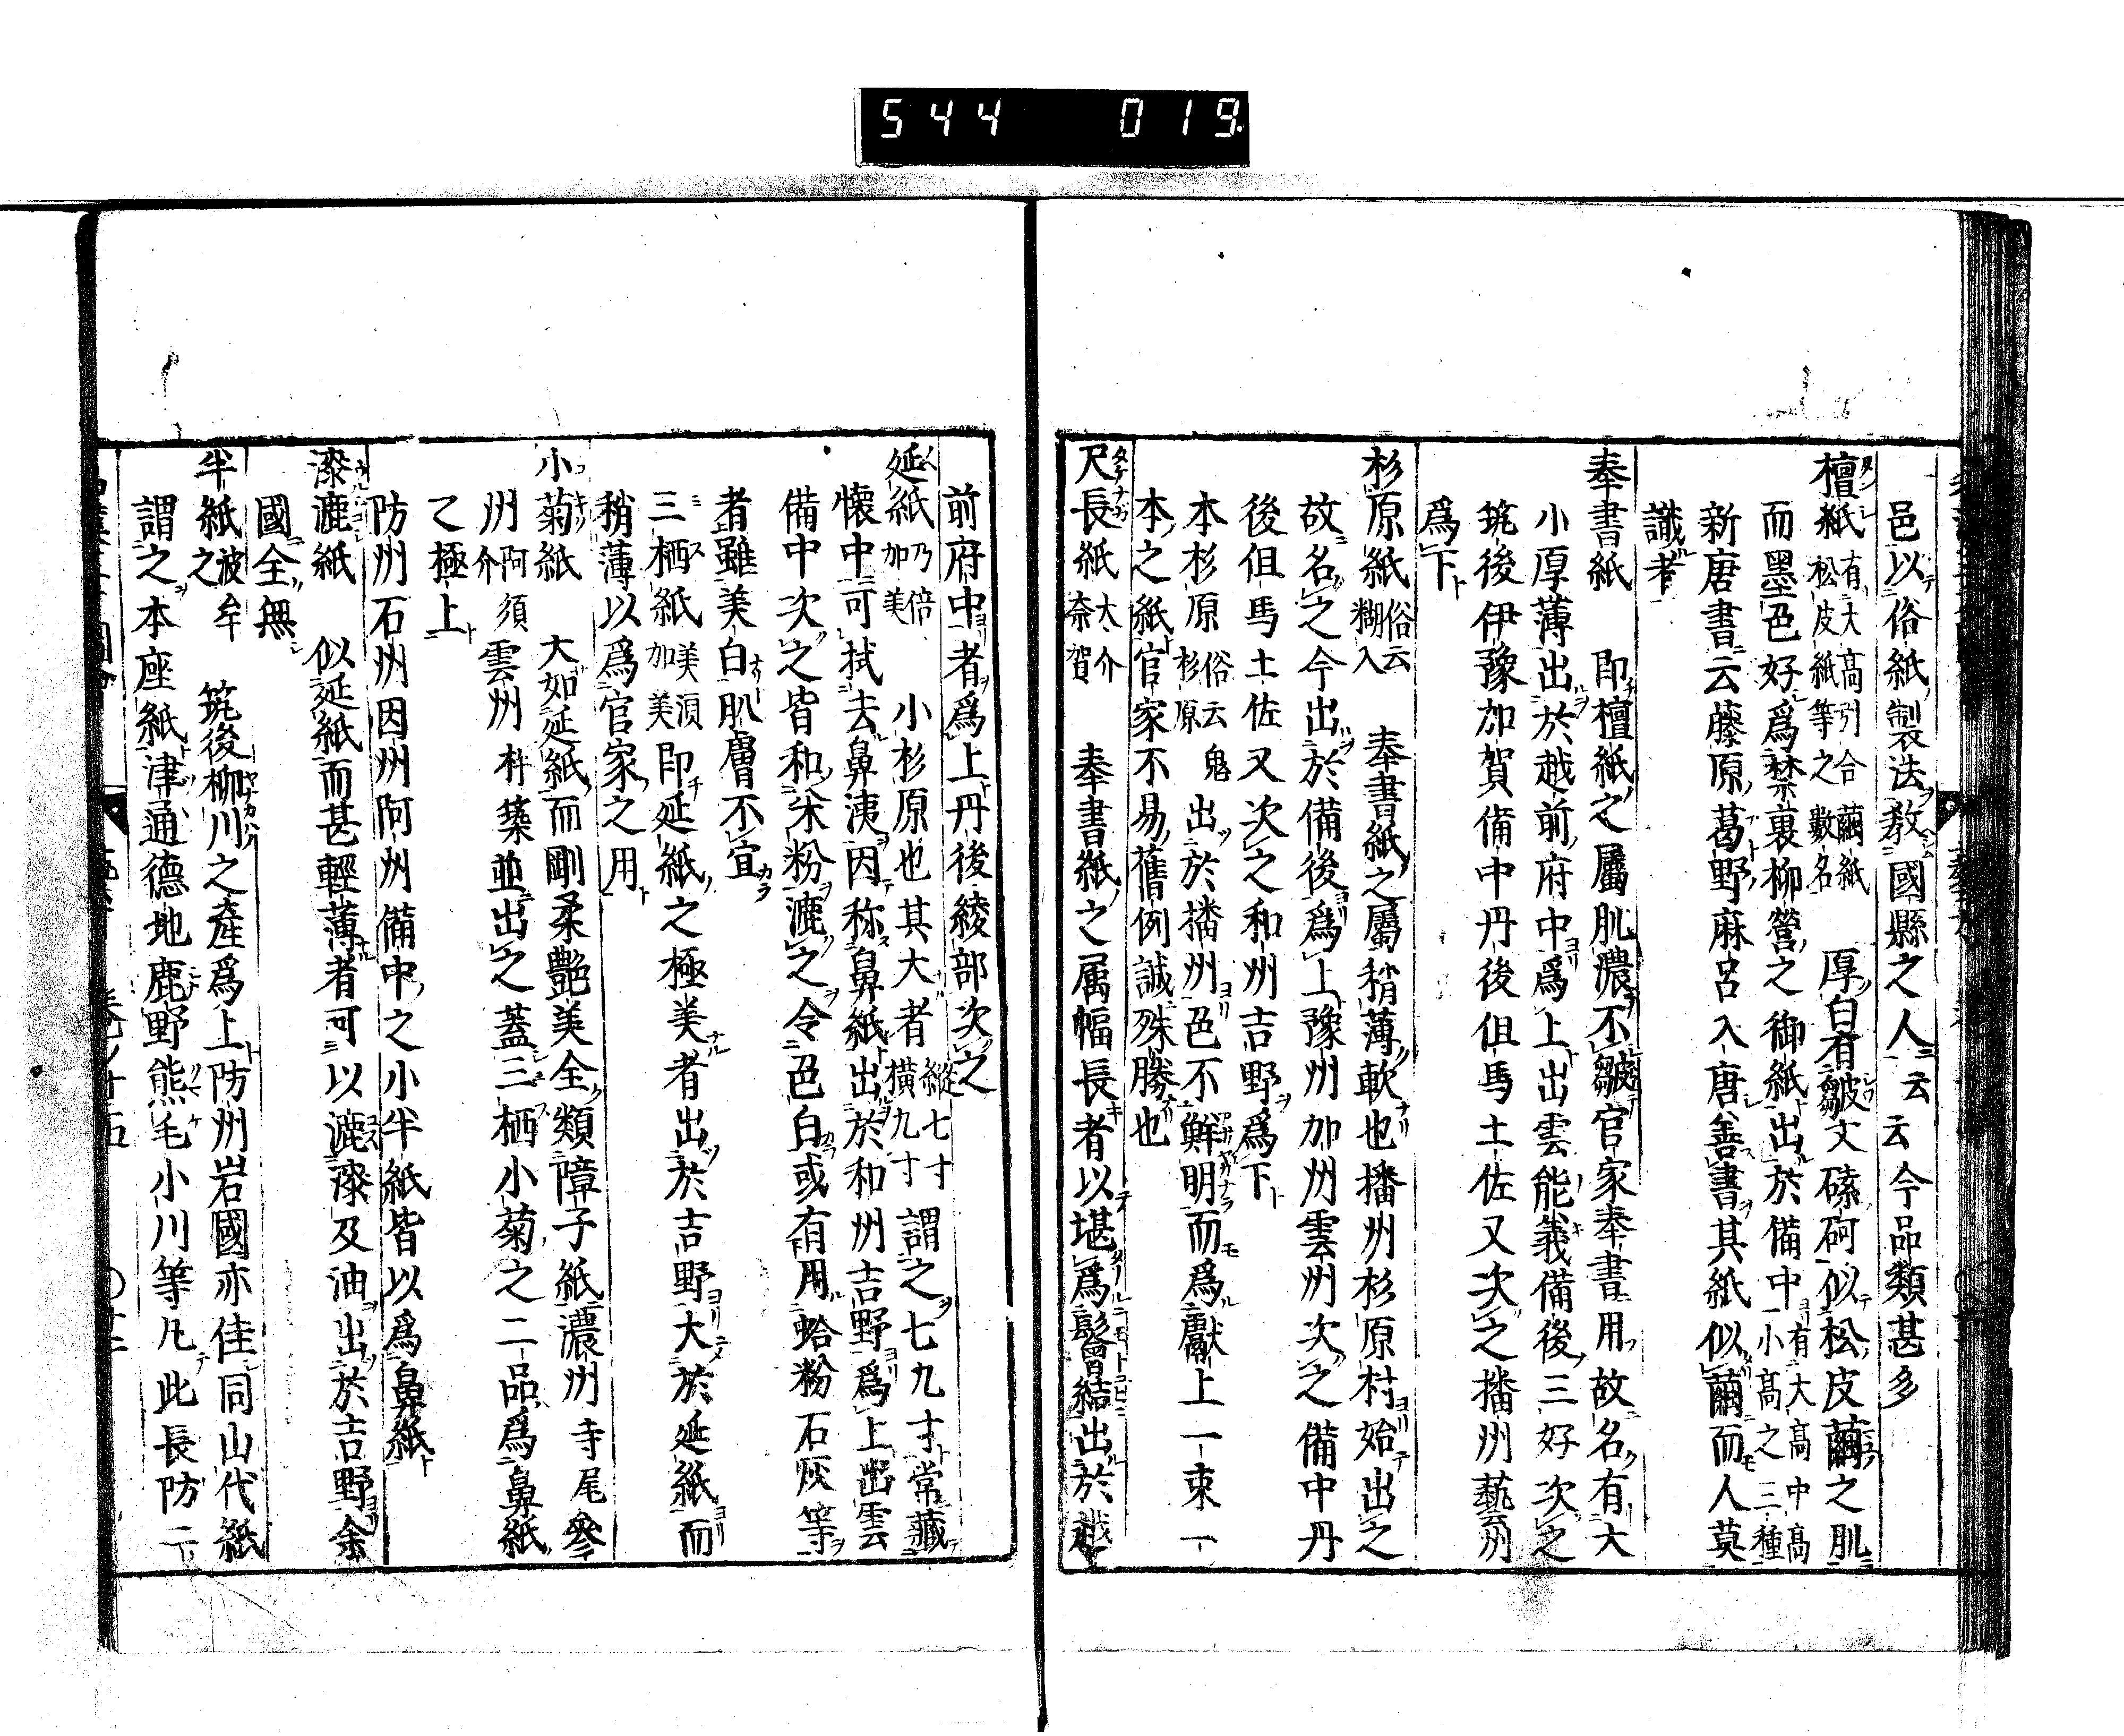 544 019
邑以俗紙製法教國縣之人云云今品類甚多
檀紙 有大高引合繭紙松皮紙等之數名 厚白有皺文磥砢似松皮繭之肌
而墨色好爲禁裏柳營之御紙出於備中 有大高中高小高之三種
新唐書云藤原葛野麻呂入唐善書其紙似繭而人莫
識者
奉書紙 即檀紙之屬肌濃不皺官家奉書用故名有大
小厚薄出於越前府中爲上出雲能義備後三好次之
筑後伊豫加賀備中丹後但馬土佐又次之播州藝州
爲下
杉原紙 俗云糊入 奉書紙之屬稍薄軟也播州杉原村始出之
故名之今出於備後爲上豫州加州雲州次之備中丹
後但馬土佐又次之和州吉野爲下
本杉原 俗云鬼杉原 出於播州色不鮮明而爲獻上一束一
本之紙官家不易舊例誠殊勝也
尺長紙 大介奈賀 奉書紙之属幅長者以堪爲髻結出於越
前府中者爲上丹後綾部次之
延紙 乃倍加美 小杉原也其大者 縱七寸橫九寸 謂之七九寸常藏
懷中可拭去鼻洟因称鼻紙出於和州吉野爲上出雲
備中次之皆和米粉漉之令色白或有用蛤粉石灰等
者雖美白肌膚不宜
三栖紙 美須加美 即延紙之極美者出於吉野大於延紙而
稍薄以爲官家之用
小菊紙 大如延紙而剛柔艷美全類障子紙濃州寺尾參
州 阿須介 雲州 杵築 並出之蓋三栖小菊之二品爲鼻紙
之極上
防州石州因州阿州備中之小半紙皆以爲鼻紙
漆漉紙 似延紙而甚輕薄者可以漉漆及油出於吉野余
國全無
半紙 波牟之 筑後柳川之產爲上防州岩國亦佳同山代紙
謂之本座紙津通德地鹿野熊毛小川等凡此長防二